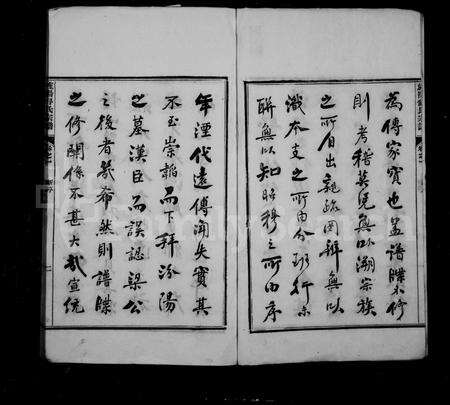 為傳家寶也蓋譜牒不修
則考稽莫憑無以溯宗族
之所自出親疏罔辨無以
識本支之所由分班行未
聯無以知昭穆之所由序
年湮代遠傳聞失實其
不至崇韜而下拜汾陽
之墓漢臣而誤認梁公
之後者幾希然則譜牒
之修關係不甚大哉宣統